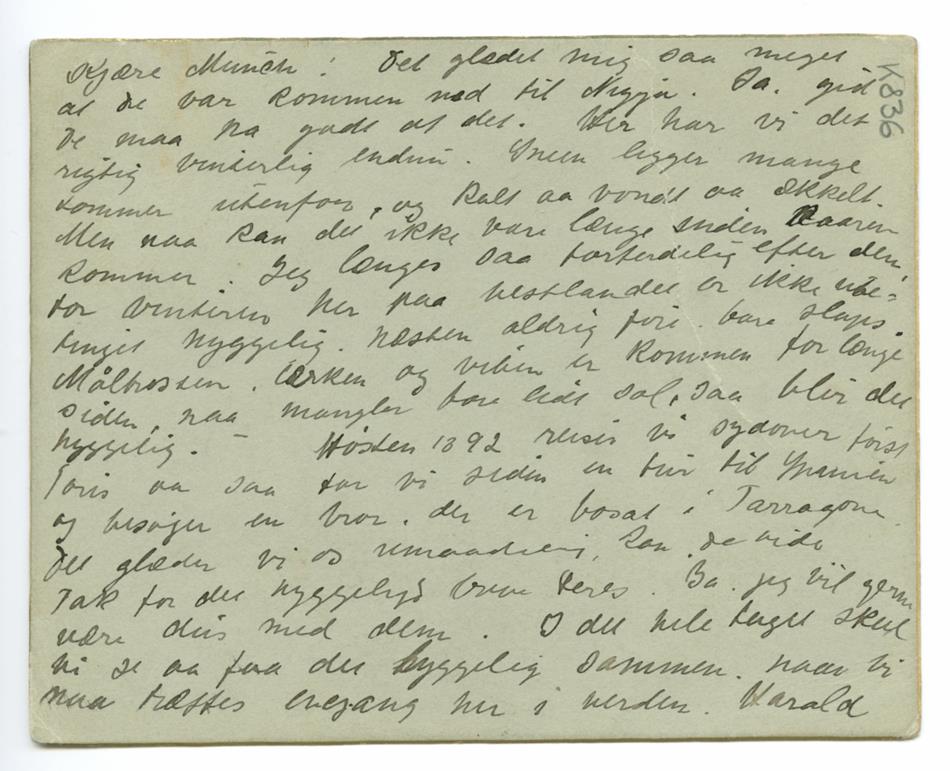 Kjære Munch! Det glædet mig saa meget
at De var kommen ned til Nizza. Ja. gid
De maa ha godt af det. Her har vi det
rigtig vinterlig endnu. Sneen ligger mange
tommer utenfor, og kalt aa vondt aa ækkelt.
Men naa kan det ikke vare længe inden Vaaren
kommer. Jeg længes saa forferdelig efter den,
for vinteren her paa vestlandet er ikke ube-
tinget hyggelig. næsten aldrig føre. bare slaps.
Måltrosten. lærken og viben er kommen for længe
siden, naa mangler bare lidt sol, saa blir det
hyggelig. – Høsten 1892 reiser vi sydover først
Paris aa saa tar vi siden en tur til Spanien
og besøger en bror. der er bosat i Tarragona.
Det glæder vi os umaadelig, kan De vide
Tak for det hyggelige brev Deres. Ja. jeg vil gerne
være dus med dem. I det hele taget skal
vi se aa faa det hyggelig sammen. naar vi
maa træffes engang her i verden. Harald
K836